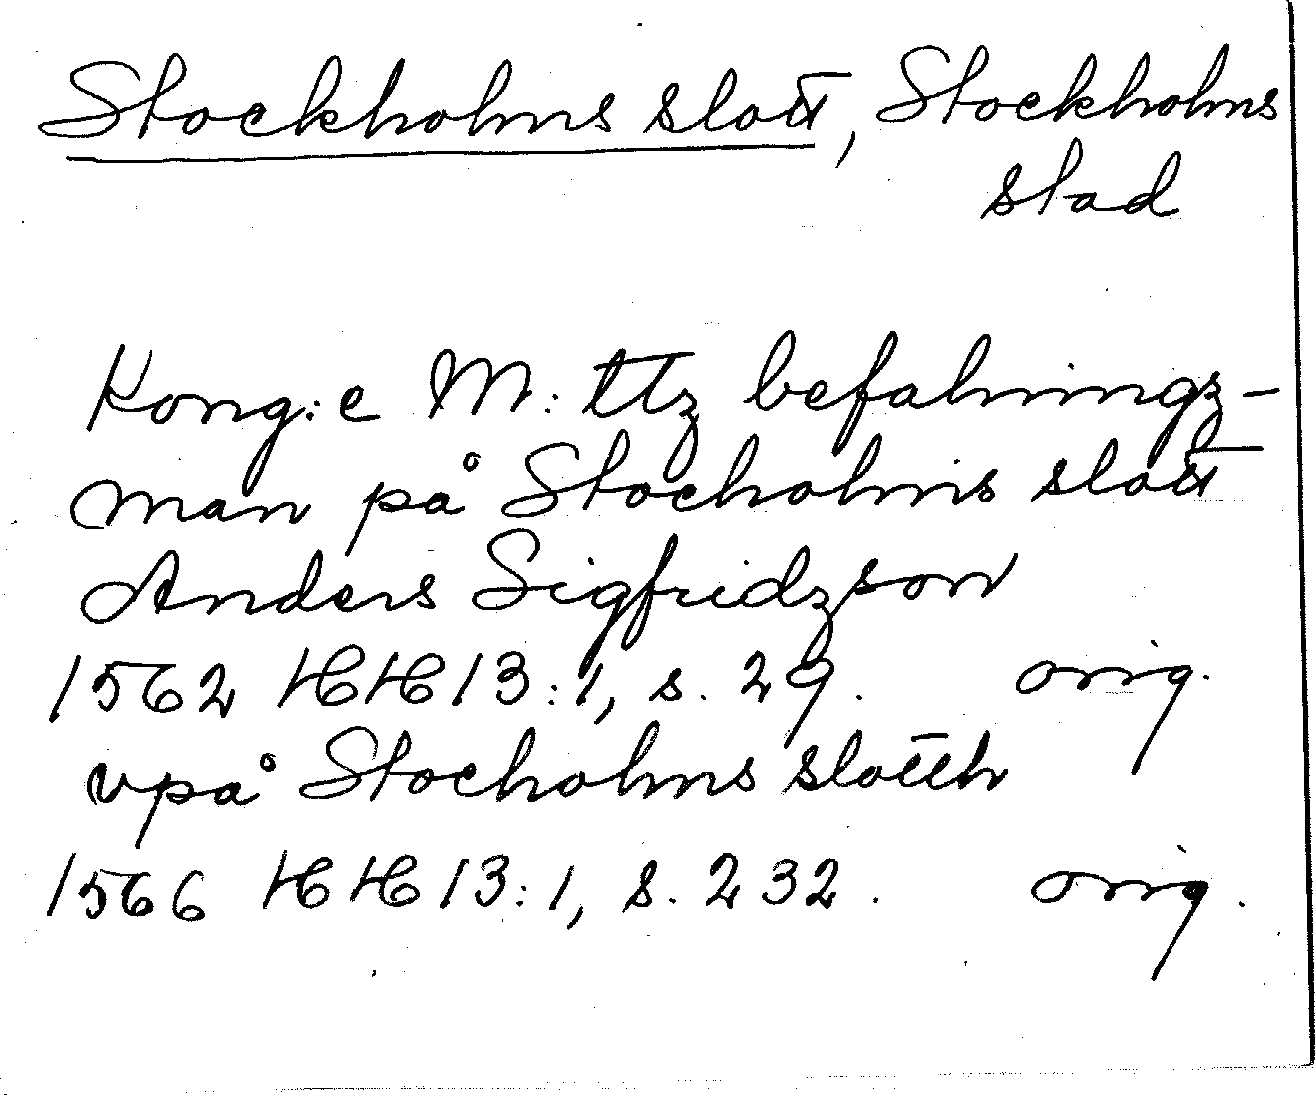 Stockholms slott, Stockholms
stad
Kong:e M:ttz befalningz-
man på Stocholms slott
Anders Sigfridzson
1562 HH 13:1, s. 29. orig.
vpå Stocholms slotth
1566 HH 13:1, s. 232. orig.